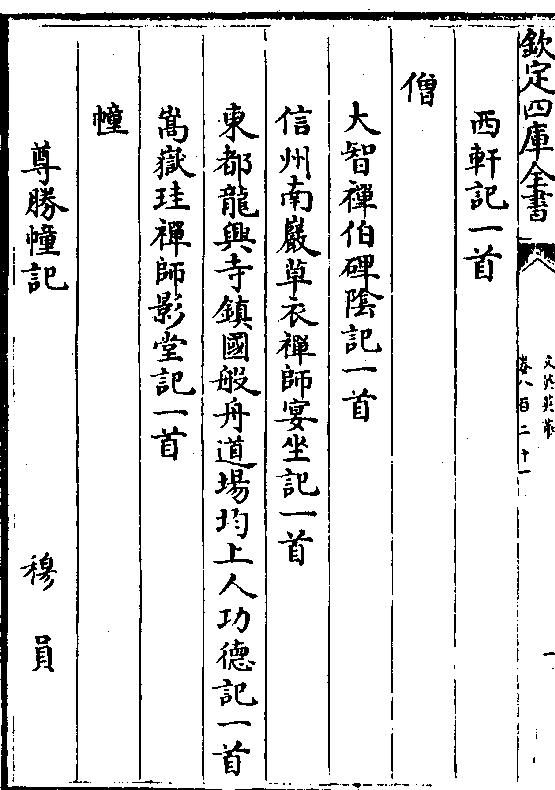 欽定四庫全書
文苑英華
卷八百二十一
一
西軒記一首
僧
大智禪伯碑陰記一首
信州南巖草衣禪師宴坐記一首
東都龍興寺鎮國般舟道場均上人功德記一首
嵩嶽珪禪師影堂記一首
幢
尊勝幢記 穆員